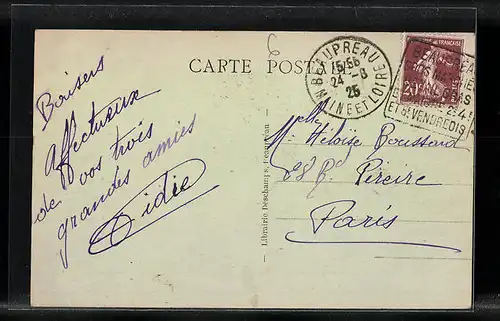 CARTE POSTALE
BEAUPREAU
15/35
24-8
25
MAINE ET LOIRE
20
ET 3e VENDREDIS
Baisers
affectueux
de vos trois
grandes amies
Didie
Mlle Héloïse Boussard
Pereire
Paris
Librairie Deschamps, Beaupréau